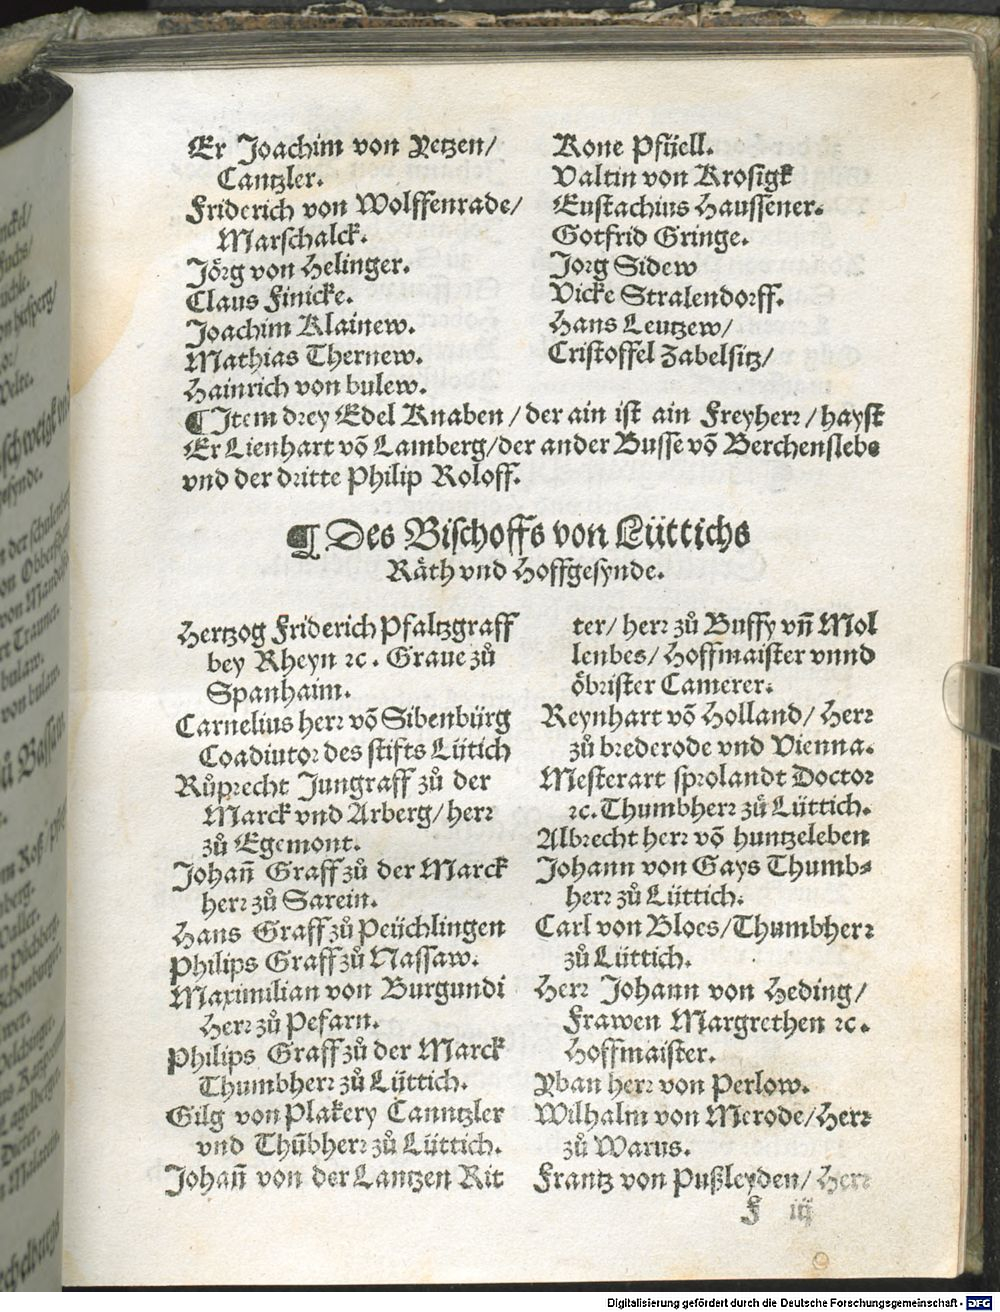 Er Joachim von Petzen/
Cantzler.
Friderich von Wolffenrade/
Marschalck.
Jörg von Helinger.
Claus Finicke.
Joachim Klainew.
Mathias Thernew.
Hainrich von bulew.
Kone Pfüell.
Valtin von Krosigk
Eustachius Haussener.
Gotfrid Gringe.
Jorg Sidew
Vicke Stralendorff.
Hans Leutzew/
Cristoffel Zabelsitz/
¶ Item drey Edel Knaben / der ain ist ain Freyherr / hayst
Er Lienhart võ Lamberg/der ander Busse võ Berchenslebe
vnd der dritte Philip Roloff.
¶ Des Bischoffs von Lüttichs
Räth vnd Hoffgesynde.
Hertzog Friderich Pfaltzgraff
bey Rheyn ꝛc. Graue zů
Spanhaim.
Carnelius herr võ Sibenbürg
Coadiutor des stifts Lütich
Růprecht Jungraff zů der
Marck vnd Arberg/ herr
zů Egemont.
Johañ Graff zů der Marck
herr zů Sarein.
Hans Graff zů Peüchlingen
Philips Graff zů Nassaw.
Maximilian von Burgundi
Herr zů Pefarn.
Philips Graff zů der Marck
Thumbherr zů Lüttich.
Gilg von Plakery Canntzler
vnd Thũbherr zů Lüttich.
Johañ von der Lantzen Rit
ter/ herr zů Buffy vñ Mol
lenbes/ Hoffmaister vnnd
öbrister Camerer.
Reynhart võ Holland/ Herr
zů brederode vnd Vienna.
Mesterart sprolandt Doctor
ꝛc. Thumbherr zů Lüttich.
Albrecht herr võ huntzeleben
Johann von Gays Thumb⸗
herr zů Lüttich.
Carl von Bloes/Thumbherr
zů Lüttich.
Herr Johann von Heding/
Frawen Margrethen ꝛc.
Hoffmaister.
Yban herr von Perlow.
Wilhalm von Merode/Herr
zů Warus.
Frantz von Pußleyden/ Herr
F iij
Digitalisierung gefördert durch die Deutsche Forschungsgemeinschaft - DFG